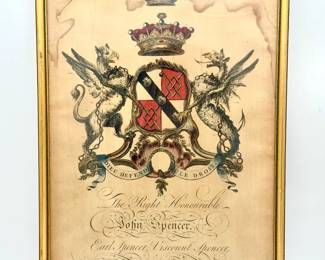 DIEU DEFEND LE DROIT
The Right Honourable
John Spencer,
Earl Spencer, Viscount Spencer,